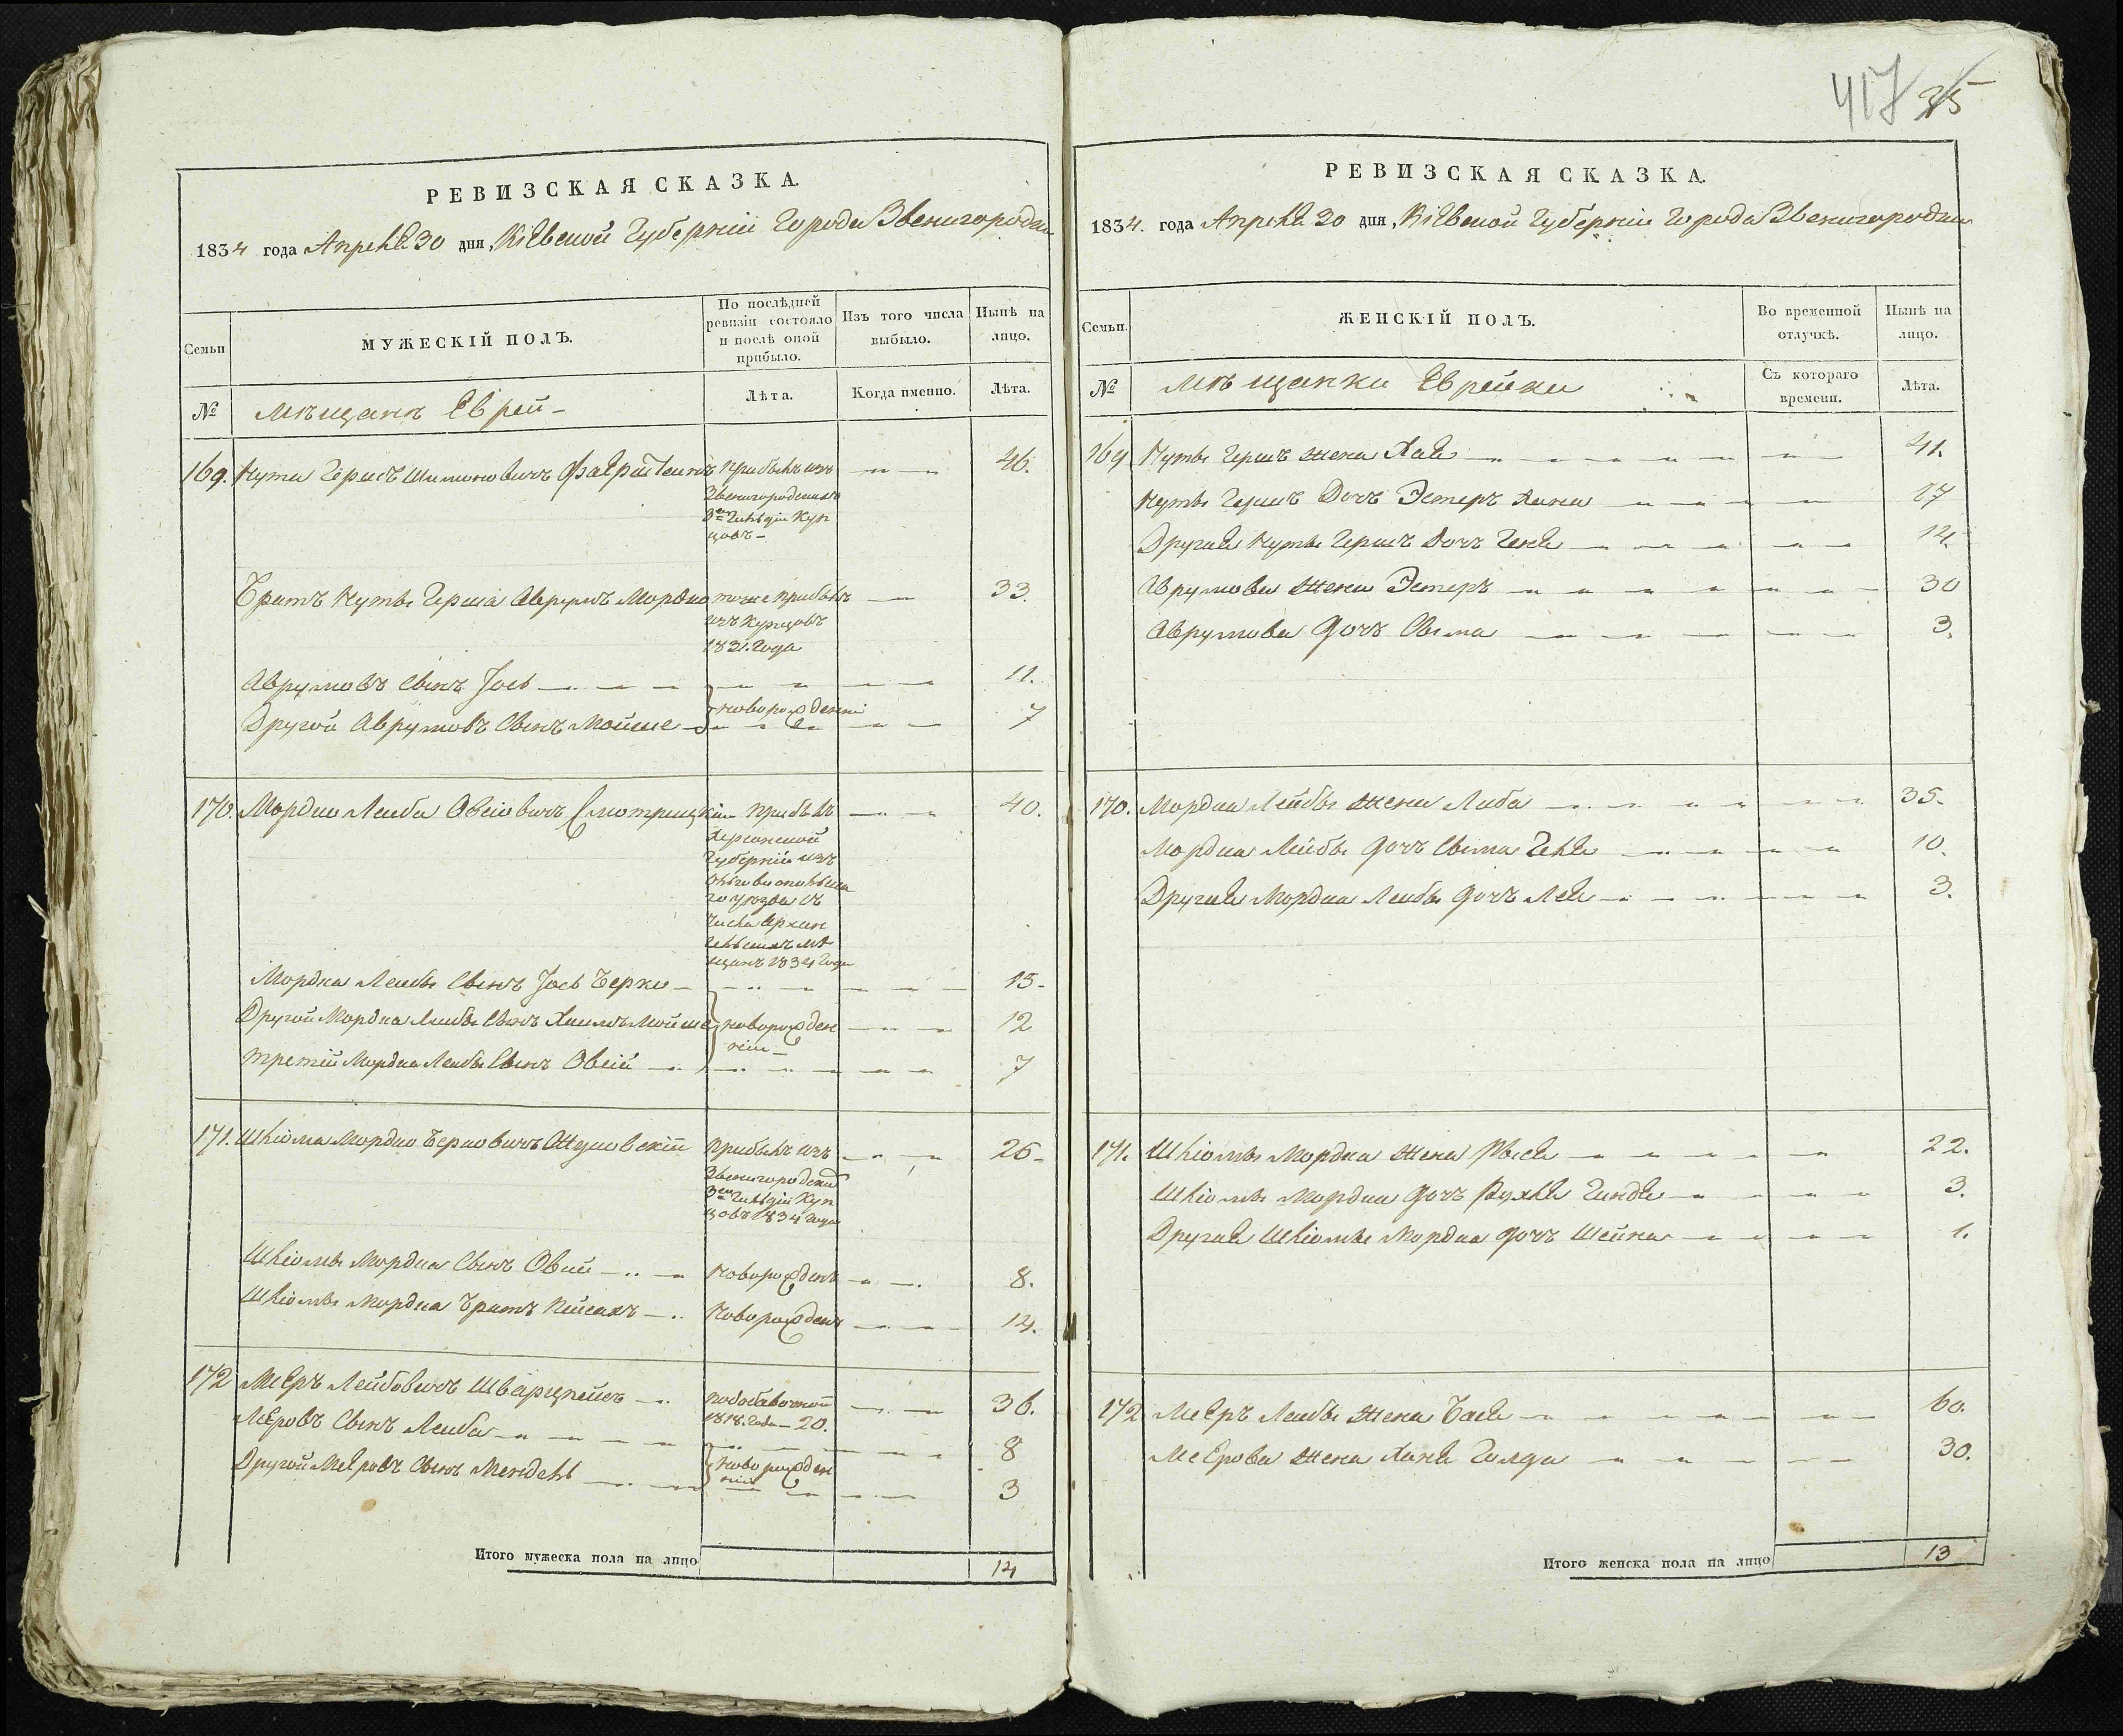 417 35
РЕВИЗСКАЯ СКАЗКА.
1834 года Апреля 30 дня, Кіевской Губерніи Города Звенигородки
Семьи
МУЖЕСКІЙ ПОЛЪ.
По послѣдней ревизіи состояло и послѣ оной прибыло.
Изъ того числа выбыло.
Нынѣ на лицо.
№
Мѣщанъ Еврей
Лѣта.
Когда именно.
Лѣта.
169. Нута Гершъ Шимоновичъ прибылъ изъ 46.
Звенигородскихъ
3ей Гильдіи Куп
цовъ
Братъ Нуты Герша Аврумъ Мордко тоже прибылъ 33.
изъ Купцовъ
1831. Года
Аврумовъ Сынъ Іось 11.
новорожденни
Другой Аврумовъ Сынъ Мойше 7
170. Мордко Леиба Овсіовичъ Смотрицкій прибылъ 40.
Херсонской
Губерніи изъ
Ольговиопольска
го уезда съ
числа Архан
гельскихъ мѣ
щанъ 1834 Года
Мордка Леибы Сынъ Іось Берко 15
Другой Мордка Леибы Сынъ Хаимъ Мойше новорожден 12
ніи
третій Мордка Леибы Сынъ Овсій 7
171. Шліома Мордко Берковичъ прибылъ изъ 26
Звенигородских
3ей Гильдіи Куп
цовъ 1834 Года
Шліомы Мордка Сынъ Овсий новорожденъ 8.
Шліомы Мордка Братъ Пейсахъ новорожденъ 14.
172 Мееръ Лейбовичъ подобавочной 36.
1818. Года 20.
Меровъ Сынъ Леиба 8
новорожден
ніи
Другой Меировъ Сынъ Мендель 3
Итого мужеска пола на лицо 14
РЕВИЗСКАЯ СКАЗКА.
1834. года Апреля 30 дня, Кіевской Губерніи Города Звенигородки
Семьи.
ЖЕНСКІЙ ПОЛЪ.
Во временной отлучкѣ.
Нынѣ на лицо.
№
Мѣщанки Еврейки
Съ котораго времени.
Лѣта.
169 Нуты Гершъ жена Хая 41.
Нуты Гершъ Дочъ Эстеръ Хана 17
Другая Нуты Гершъ Дочъ Геня 14.
Аврумова жена Эстеръ 30
Аврумова дочъ Сима 3.
170. Мордка Лейбы жена Либа 35.
Мордка Лейбы дочъ Сима Геля 10.
Другая Мордка Леибы дочъ Лея 3.
171. Шліомы Мордка жена Рыся 22.
Шліомы Мордка дочъ Рухля Гиндя 3.
Другая Шліомы Мордка дочъ Шейна 1.
172 Мееръ Леибы жена Бася 60.
Меерова жена Ханя Голда 30.
Итого женска пола на лицо 13